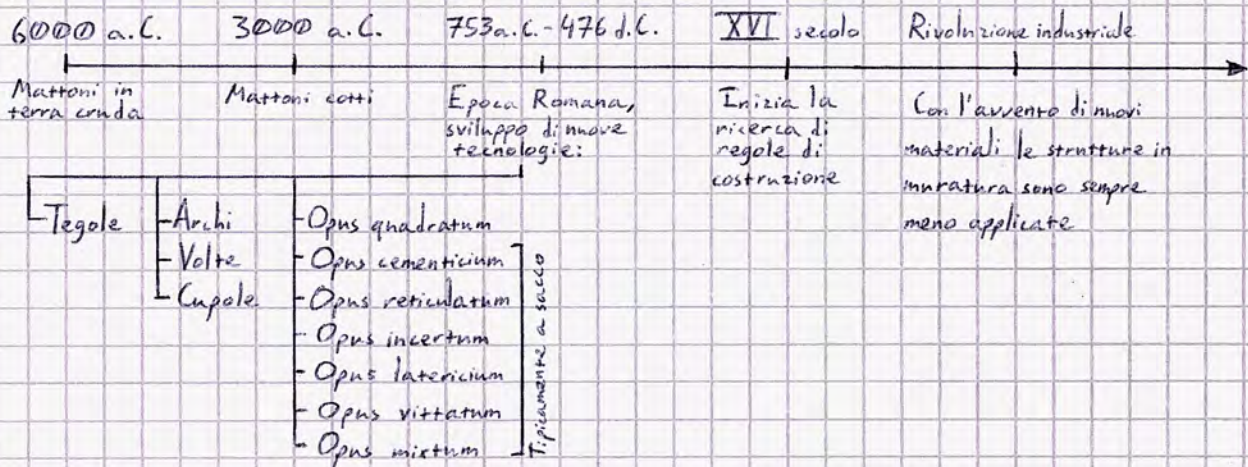 6000 a.C.
3000 a.C.
753 a.C. - 476 d.C.
XVI secolo
Rivoluzione industriale
Mattoni in
terra cruda
Mattoni cotti
Epoca Romana,
sviluppo di nuove
tecnologie:
Inizia la
ricerca di
regole di
costruzione
Con l'avvento di nuovi
materiali le strutture in
muratura sono sempre
meno applicate
Tegole
Archi
Volte
Cupole
Opus quadratum
Opus cementicium
Opus reticulatum
Opus incertum
Opus latericium
Opus vittatum
Opus mixtum
Tipicamente a sacco